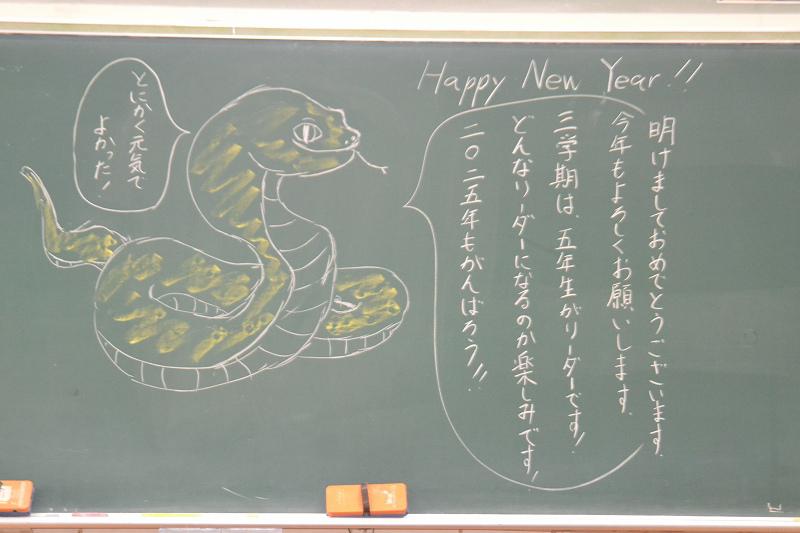 Happy New Year!!
明けましておめでとうございます。
今年もよろしくお願いします。
三学期は、五年生がリーダーです！
どんなリーダーになるのか楽しみです。
二〇二五年もがんばろう!!
とにかく元気で
よかった！